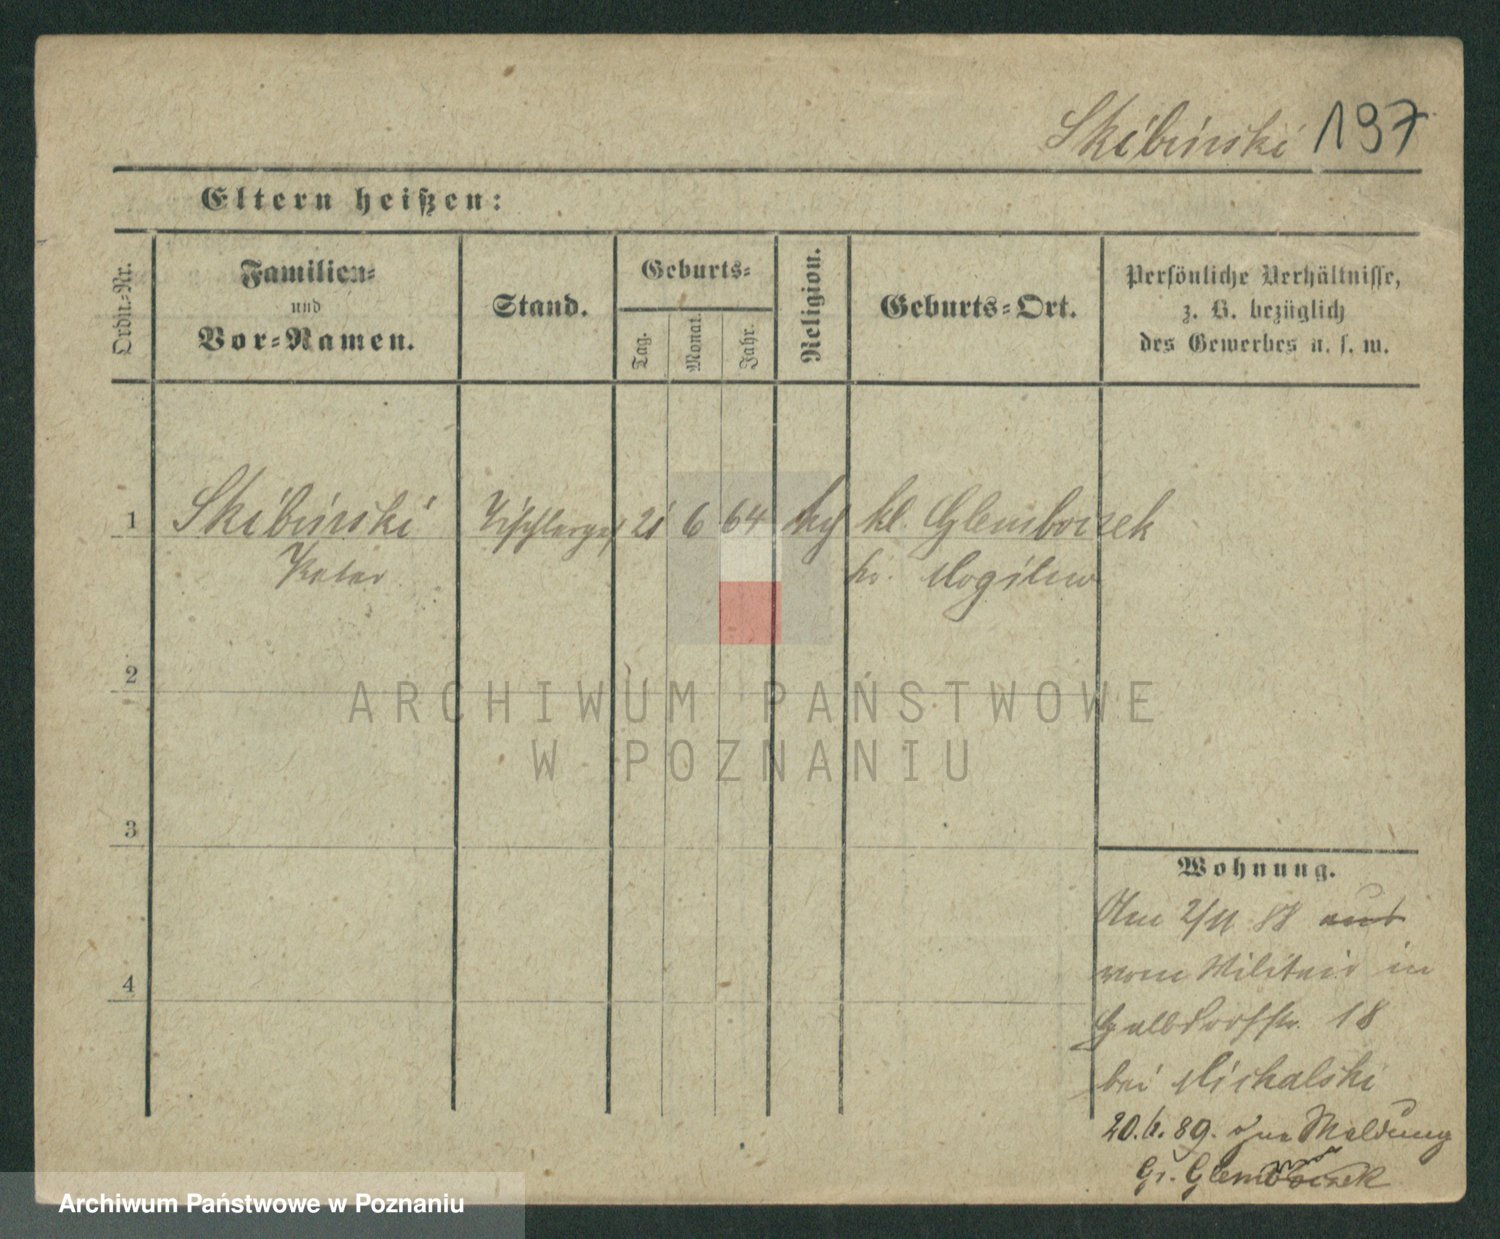 Skibinski 197
Eltern heißen:
Ordn.-Nr.
Familien-
und
Vor-Namen.
Stand.
Geburts-
Tag.
Monat.
Jahr.
Religion.
Geburts-Ort.
Persönliche Verhältnisse,
z. B. bezüglich
des Gewerbes u. s. w.
1 Skibinski Tischlerges 21 6 64 kl. Glemboczek
Peter Kr. Mogilno
2
3
4
Wohnung.
Am 2/11 88 aus
vom Militair in
Halbdorfstr. 18
bei Michalski
20.6.89. Meldung
Gr. Glemboczek
ARCHIWUM PAŃSTWOWE
W POZNANIU
Archiwum Państwowe w Poznaniu